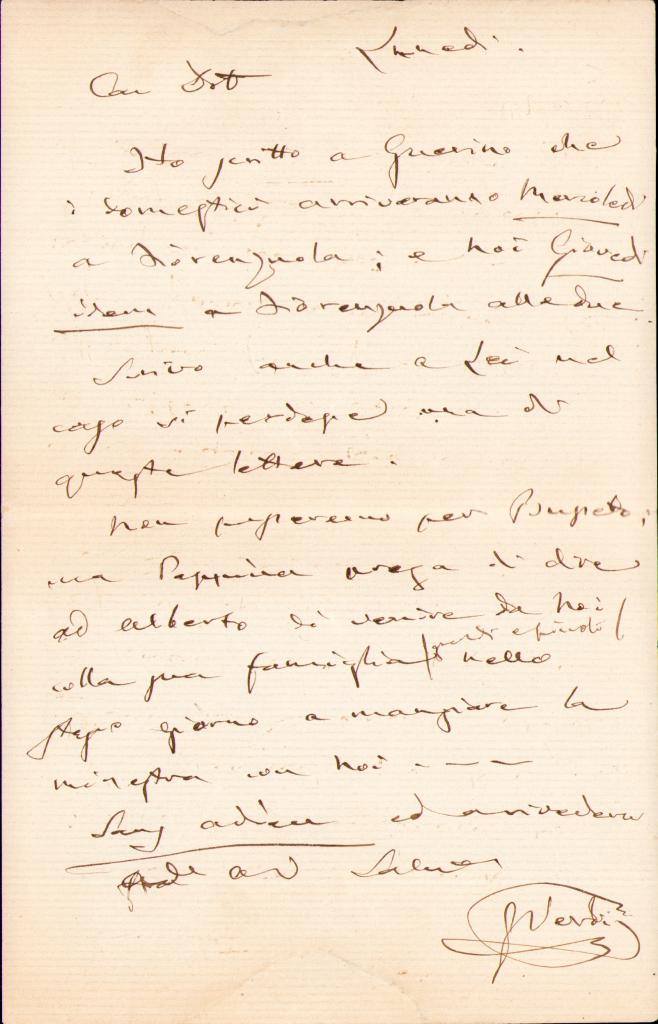 Lunedi.
Car Dott
Ho scritto a Guerino che
i domestici arriveranno Mercoledi
a Fiorenzuola; e noi Giovedi
idem a Fiorenzuola alle due
Scrivo anche a Lei nel
caso si perdesse una di
queste lettere.
Non passeremo per Busseto;
ma Peppina prega di dire
ad Alberto di venire da noi
colla sua famiglia (grandi e piccoli) nello
stesso giorno a mangiare la
minestra con noi - - -
Sans adieu ed a rivederci
ad Salute
GVerdi